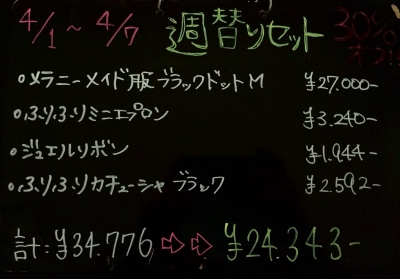 4/1～4/7 週替りセット 30%オフ!
・メラニーメイド服ブラックドットM ¥27.000-
・ふりふりミニエプロン ¥3.240-
・ジュエルリボン ¥1.944-
・ふりふりカチューシャブラック ¥2.592-
計:¥34.776⇨⇨¥24.343-